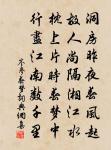 洞房昨夜春風起
故人尚隔湘江水
枕上片時春夢中
行盡江南數千里
岑參春夢詞典網集